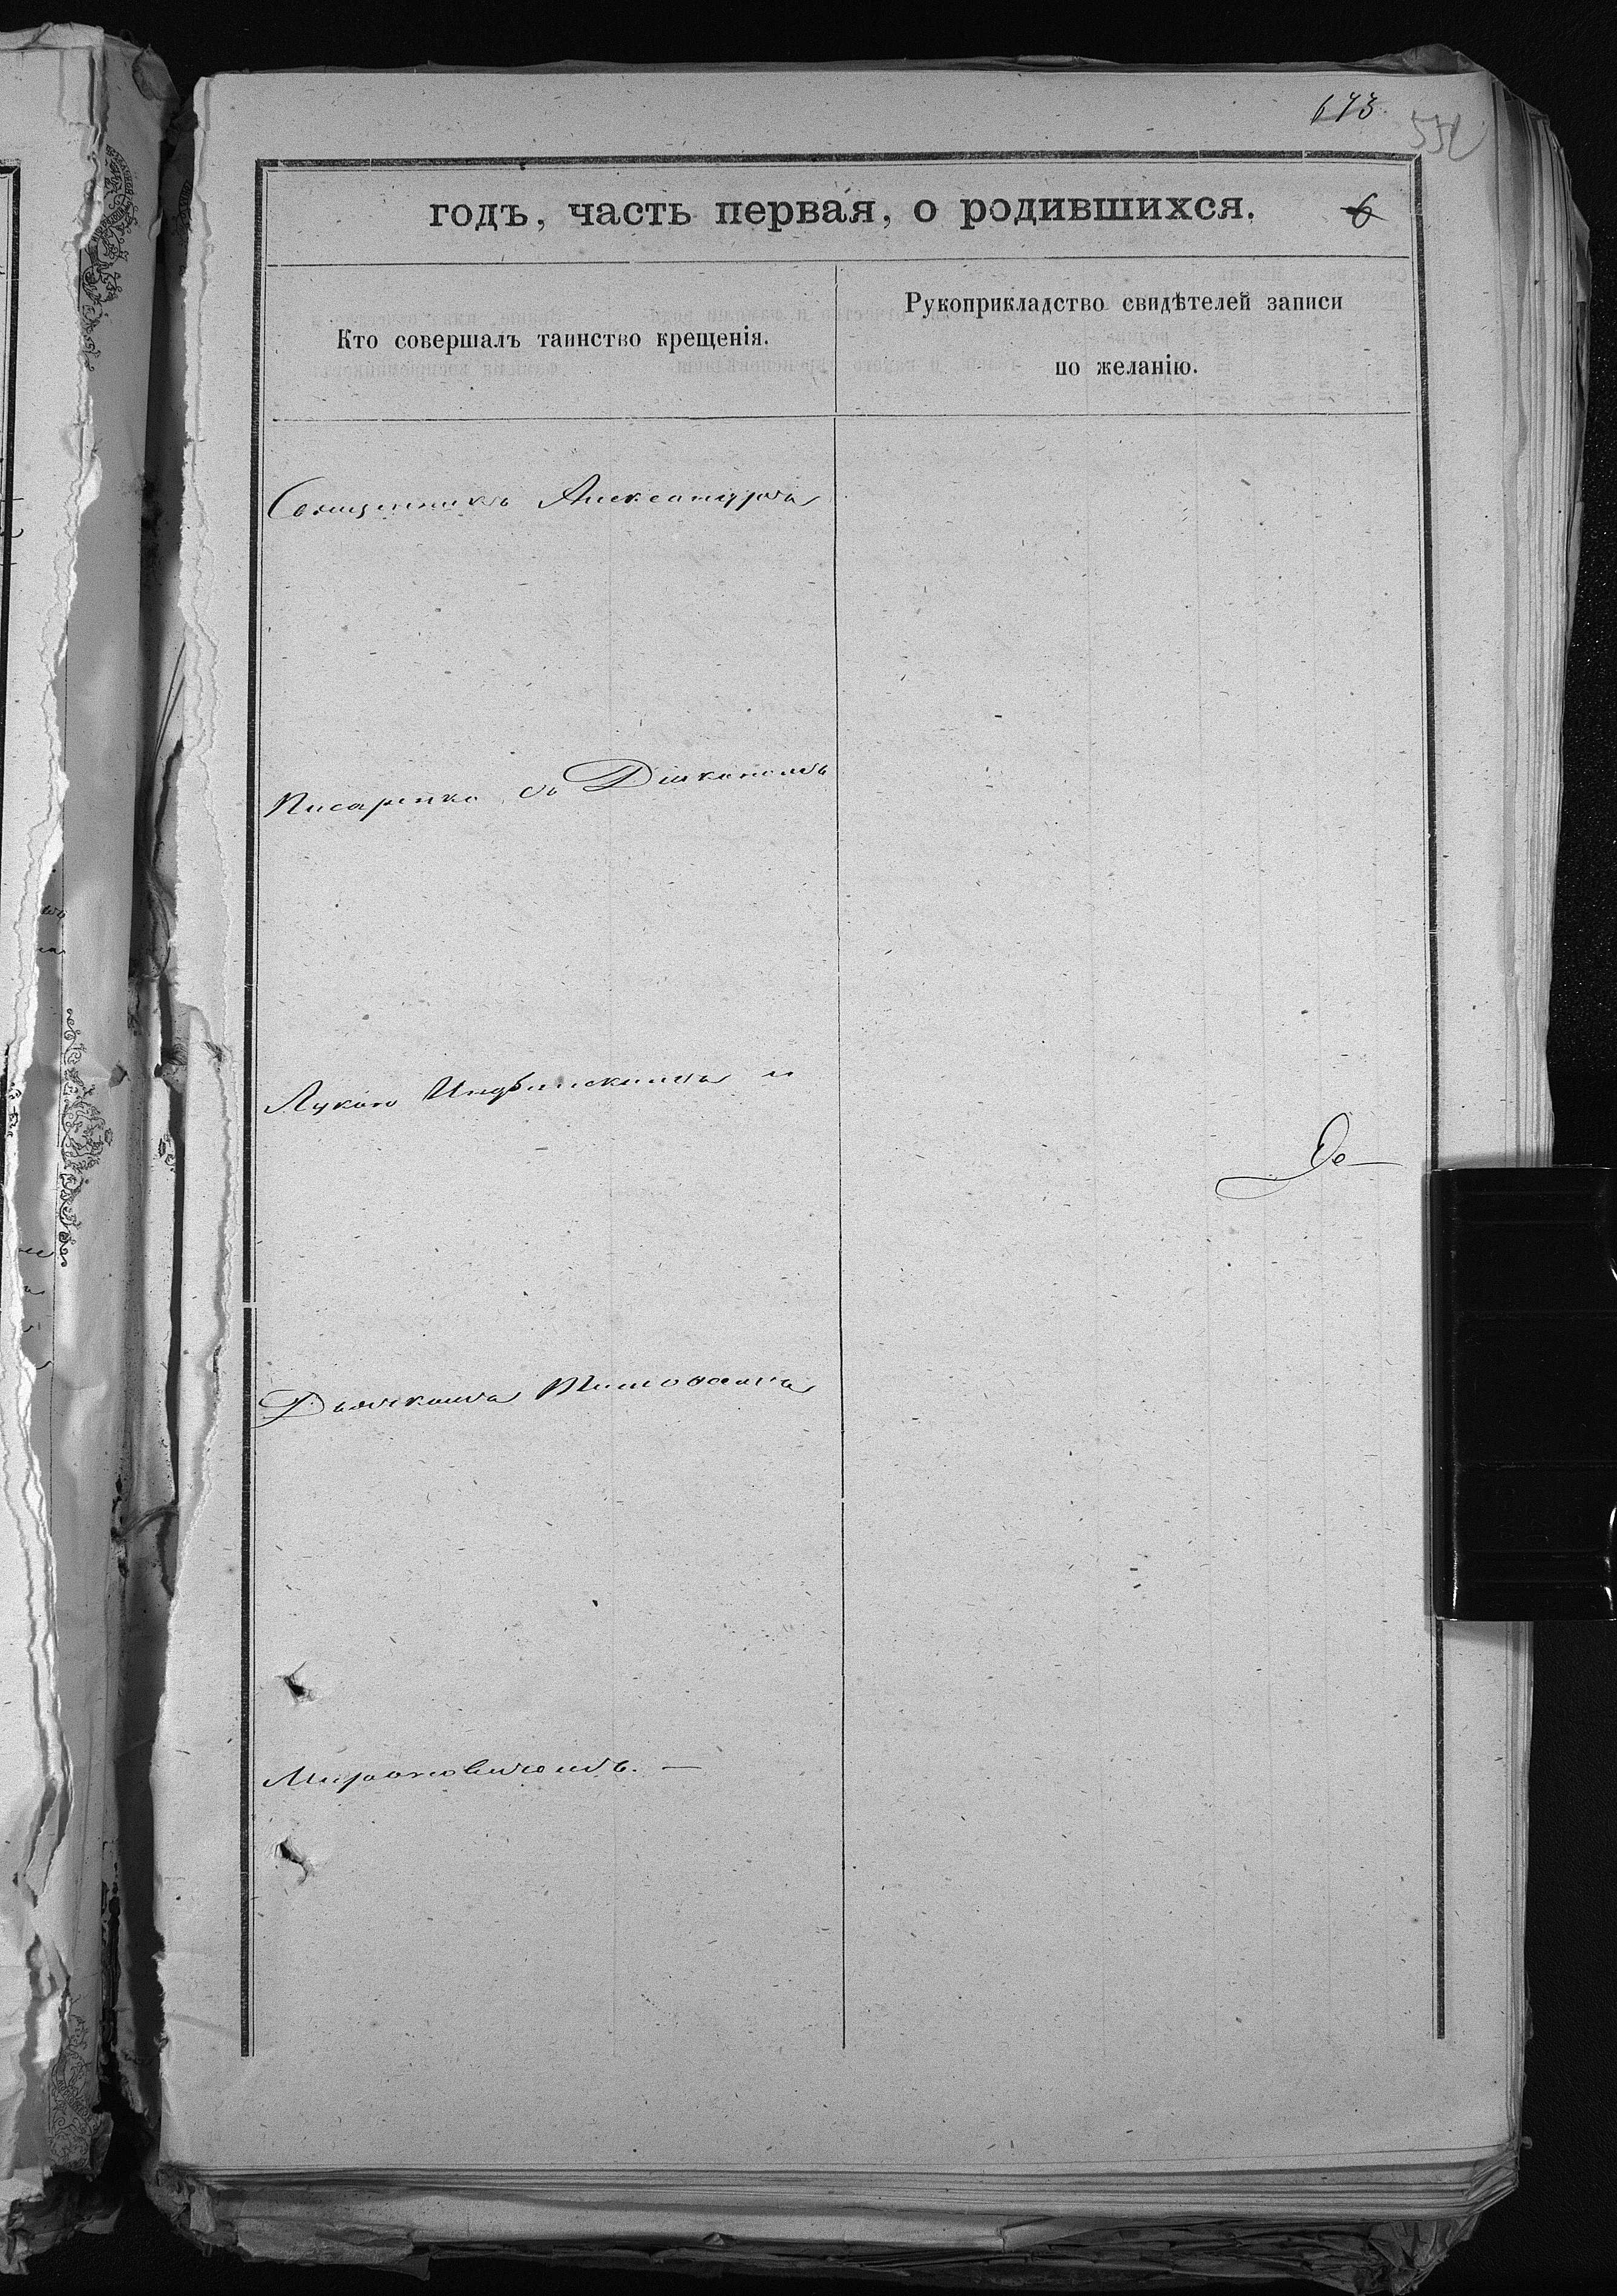 673
552
годъ, часть первая, о родившихся.
6
Кто совершалъ таинство крещенія.
Рукоприкладство свидѣтелей записи
по желанію.
Священникъ Александръ
Писаренко съ Діакономъ
Лукою и
Де-
Дьячкомъ
Мироновичомъ. —